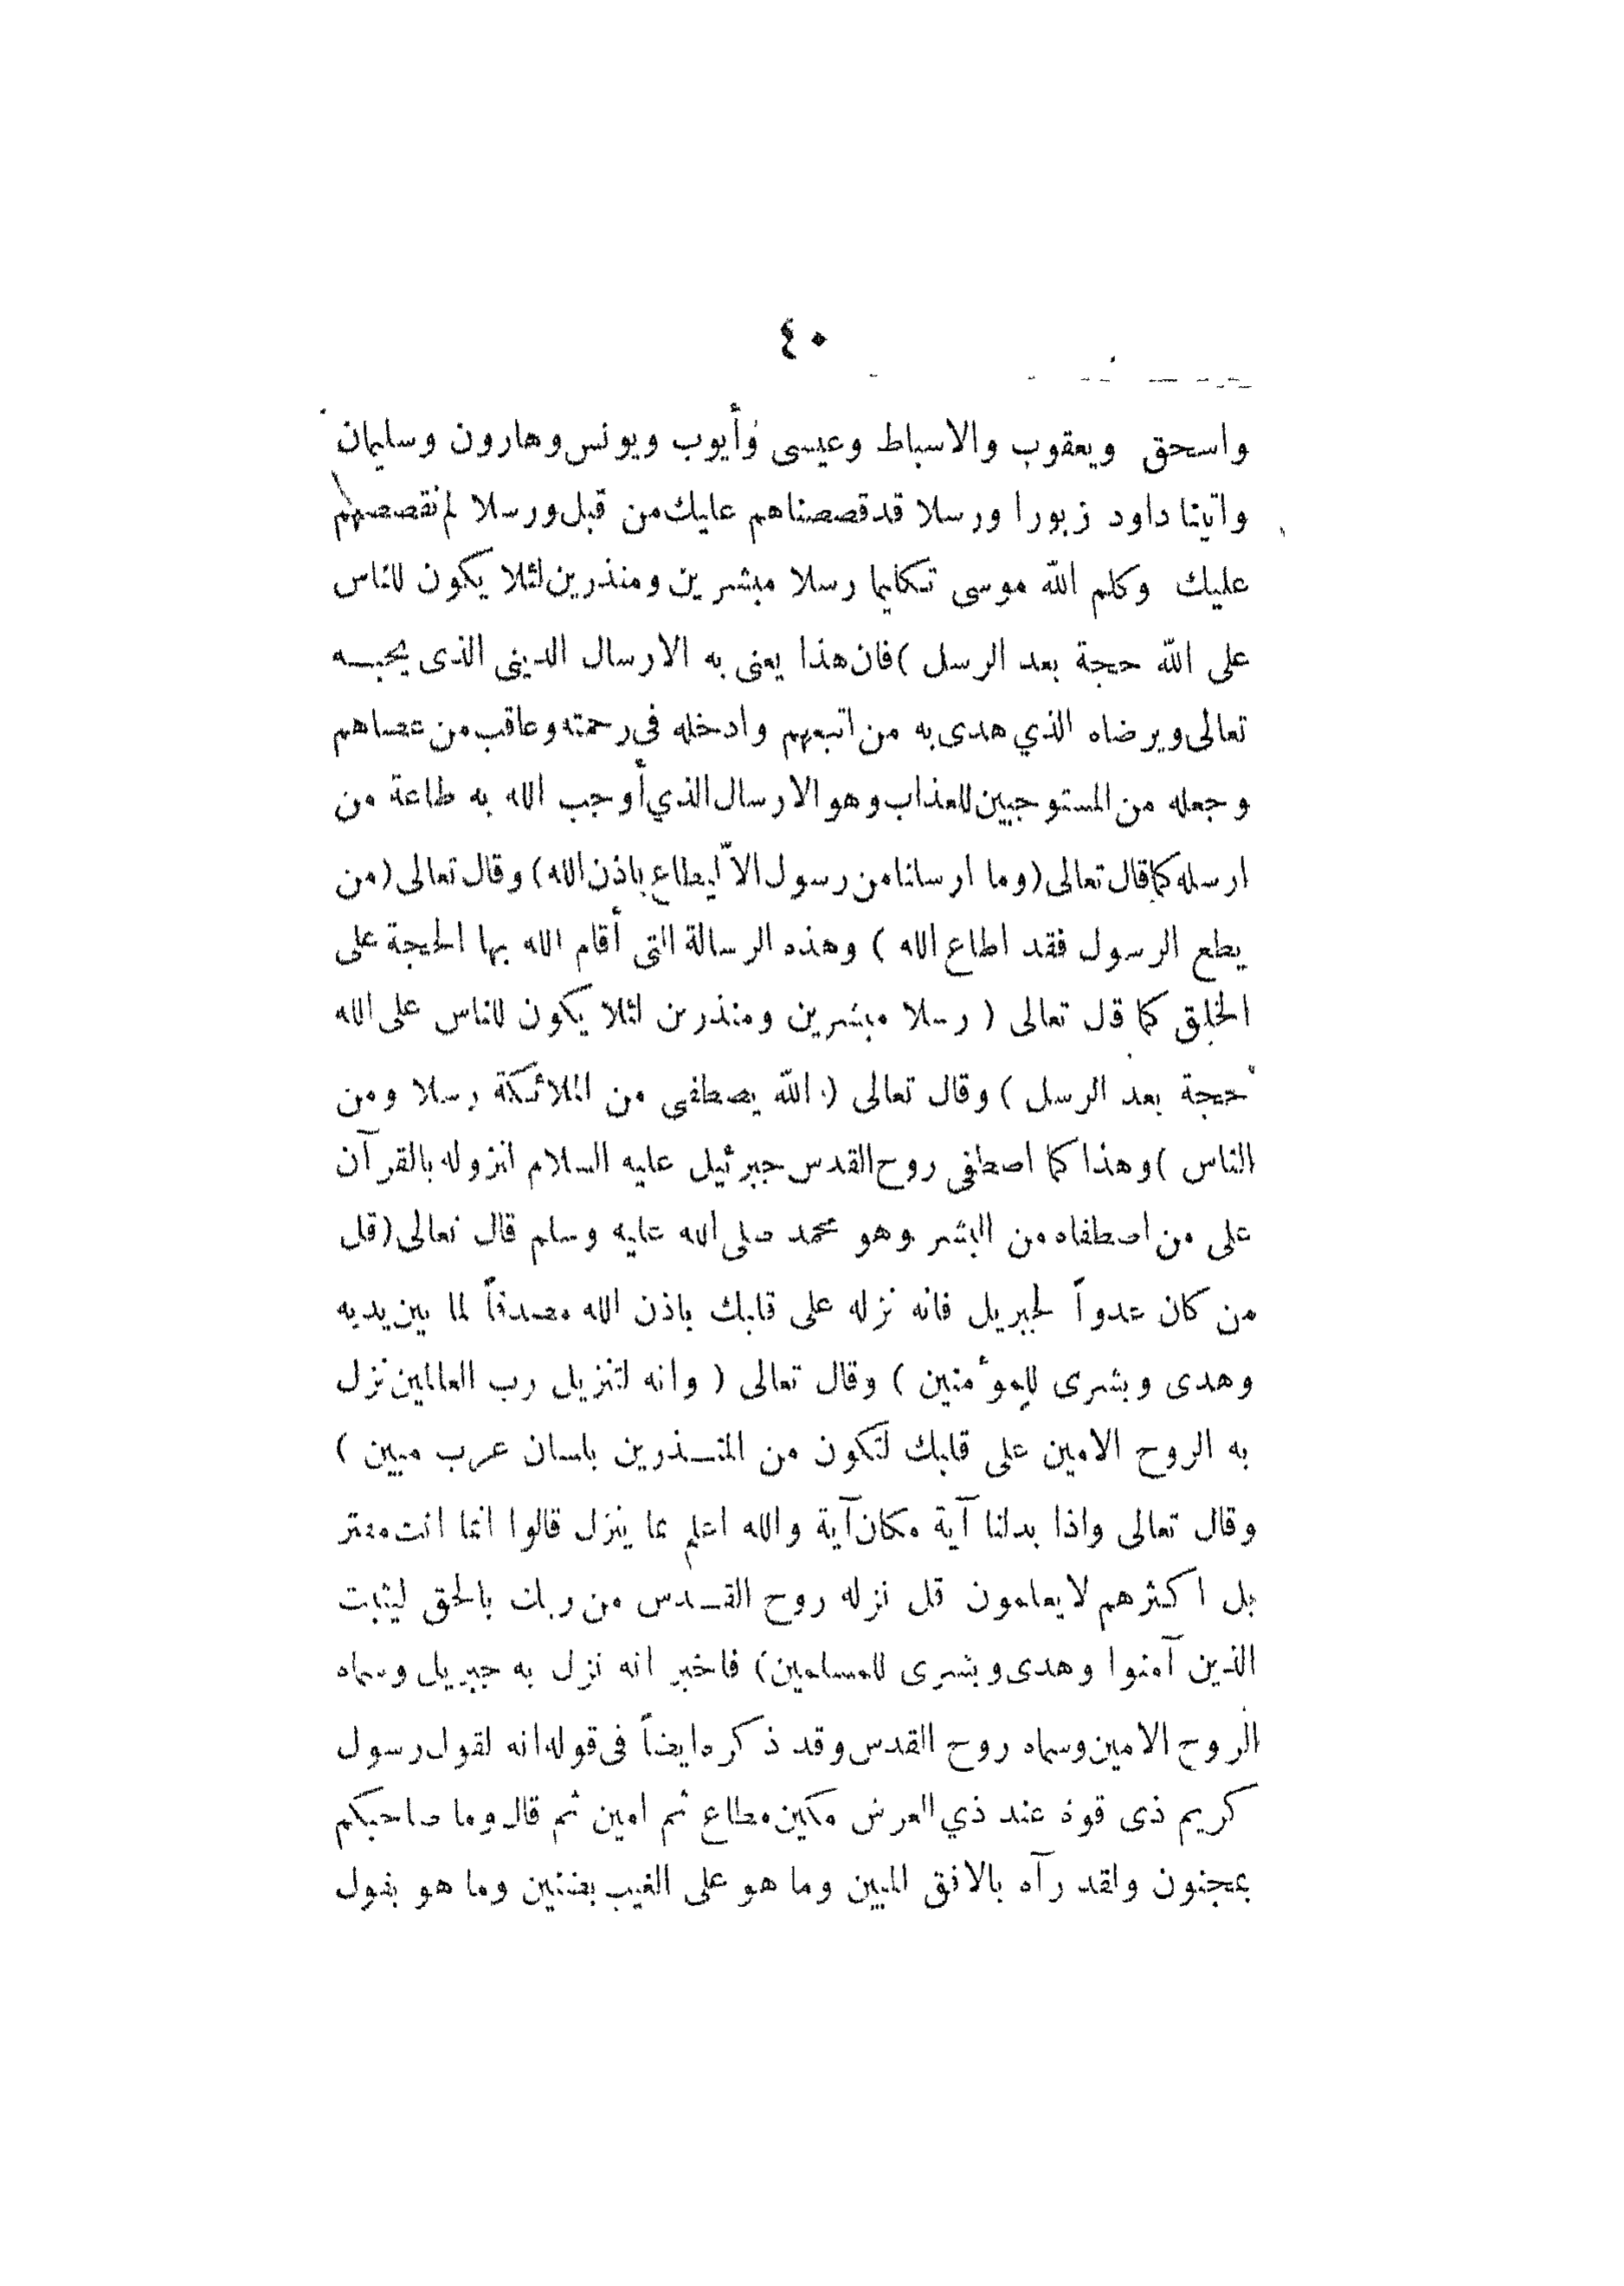 ٤٠
واسحق ويعقوب والاسباط وعيسى وأيوب ويونس وهارون وسليمان
واتينا داود زبورا ورسلا قد قصصناهم عليك من قبل ورسلا لم نقصصهم
عليك وكلم الله موسى تكليما رسلا مبشرين ومنذرين لئلا يكون للناس
على الله حجة بعد الرسل ) فان هذا يعنى به الارسال الدينى الذى يحبـــه
تعالى ويرضاه الذي هدى به من اتبعهم وادخله فى رحمته وعاقب من عصاهم
وجعله من المستوجبين للعذاب وهو الارسال الذي أوجب الله به طاعة من
ارسله كما قال تعالى (وما ارسلنا من رسول الاّ ليطاع باذن الله) وقال تعالى (من
يطع الرسول فقد اطاع الله ) وهذه الرسالة التى أقام الله بها الحجة على
الخلق كما قل تعالى ( رسلا مبشرين ومنذرين لئلا يكون للناس على الله
حجة بعد الرسل ) وقال تعالى ( الله يصطفى من الملائكة رسلا ومن
الناس ) وهذا كما اصطفى روح القدس جبرئيل عليه السلام لنزوله بالقرآن
على من اصطفاه من البشر وهو محمد صلى الله عليه وسلم قال تعالى (قل
من كان عدواً لجبريل فانه نزله على قلبك باذن الله مصدقاً لما بين يديه
وهدى وبشرى للموٴمنين ) وقال تعالى ( وانه لتنزيل رب العالمين نزل
به الروح الامين على قلبك لتكون من المنـــذرين بلسان عرب مبين )
وقال تعالى واذا بدلنا آية مكان آية والله اعلم بما ينزل قالوا انما انت مفتر
بل اكثرهم لا يعلمون قل نزله روح القـــدس من ربك بالحق ليثبت
الذين آمنوا وهدى وبشرى للمسلمين) فاخبر انه نزل به جبريل وسماه
الروح الامين وسماه روح القدس وقد ذكره ايضاً فى قوله انه لقول رسول
كريم ذى قوة عند ذي العرش مكين مطاع ثم امين ثم قال وما صاحبكم
بمجنون ولقد رآه بالافق المبين وما هو على الغيب بضنين وما هو بقول